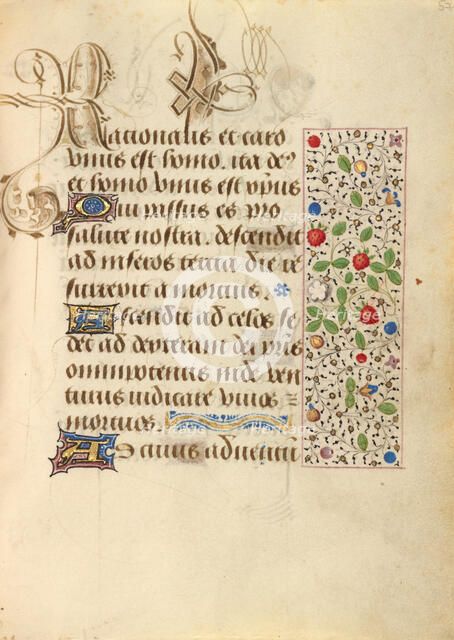 Racionalis et caro
vnus est homo. ita de⁹
et homo vnus est xp̄us
Qui passus es pro
salute nostra. descendit
ad inferos tercia die re
surrexit a mortuis.
Ascendit ad celos se
det ad dexteram dei pr̄is
omnipotentis inde ven
turus iudicare viuos ⁊
mortuos.
Ad cuius aduentū
Heritage